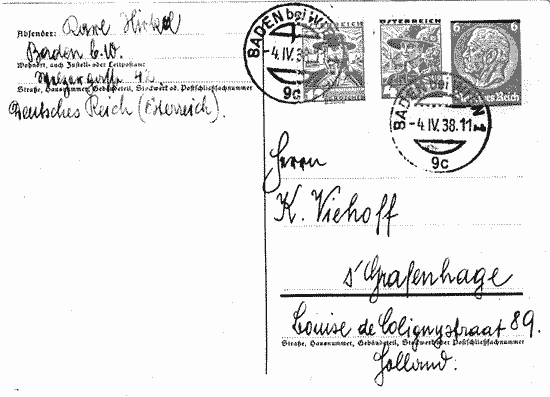 Absender:
Baden b. W.
Wohnort, auch Zustell- oder Leitpostamt
Straße, Hausnummer, Gebäudeteil, Stockwerk od. Postschließfachnummer
Deutsches Reich (Österreich).
BADEN bei WIEN
-4.IV.3
9c
ÖSTERREICH
6 6
Deutsches Reich
BADEN bei WIEN 1
-4.IV.38.11
9c
Herrn
K. Viehoff
s'Grafenhage
Louise de Colignystraat 89.
Straße, Hausnummer, Gebäudeteil, Stockwerk oder Postschließfachnummer
Holland.